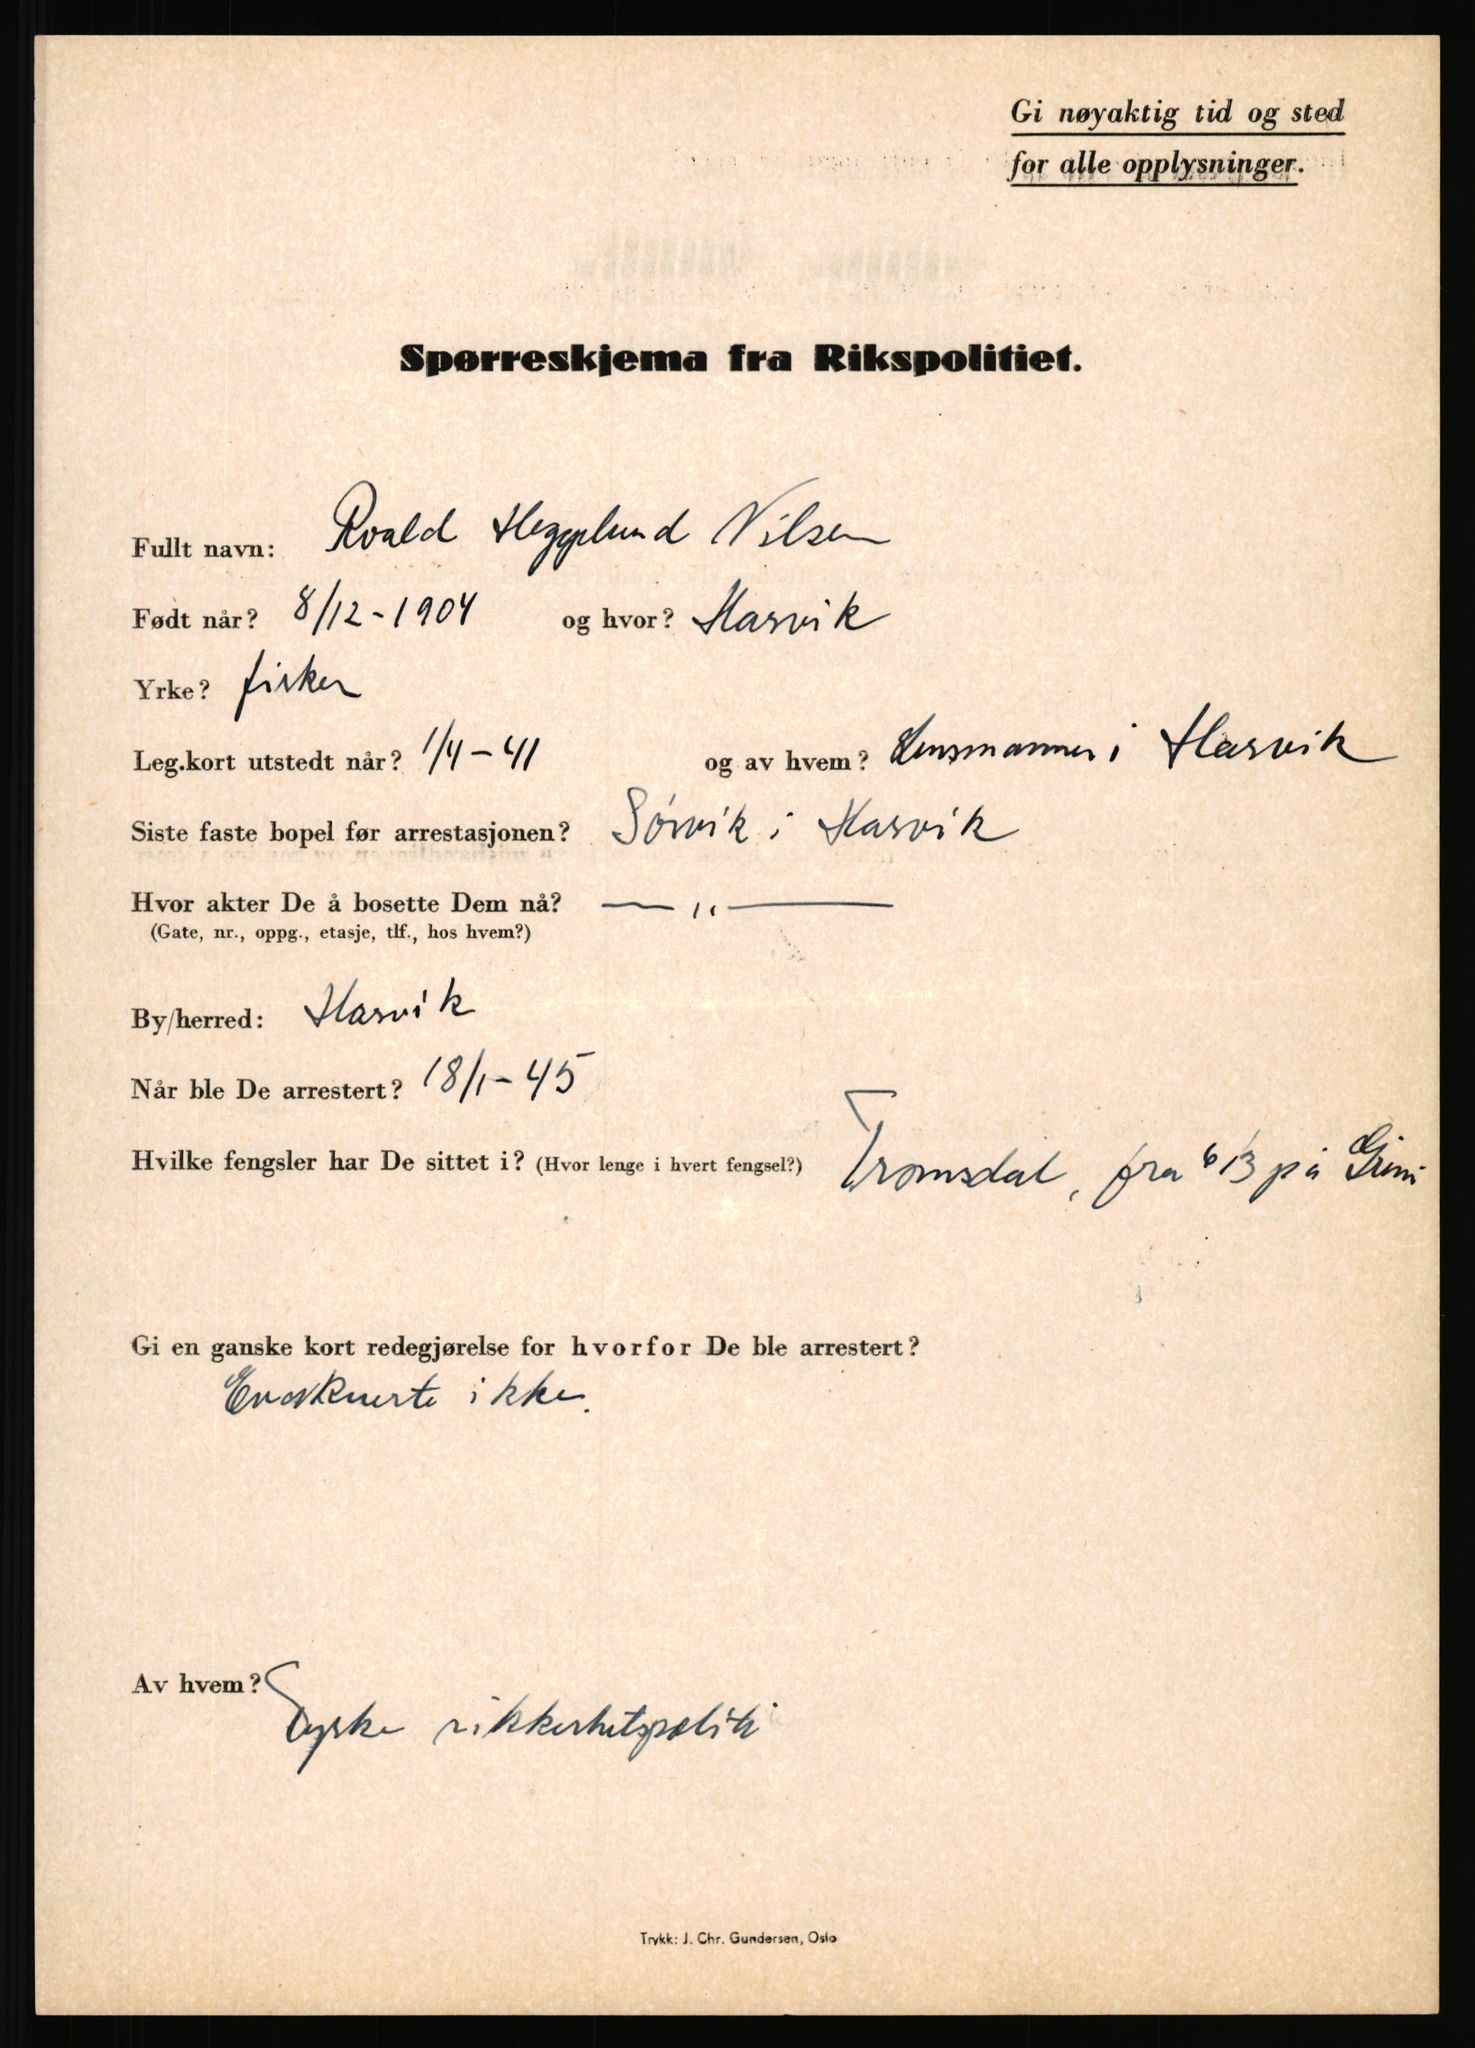 Gi nøyaktig tid og sted
for alle opplysninger.
Spørreskjema fra Rikspolitiet.
Fullt navn: Roald Heggelund Nilsen
Født når? 8/12-1904 og hvor? Hasvik
Yrke? fisker
Leg.kort utstedt når? 1/4-41 og av hvem? Lensmannen i Hasvik
Siste faste bopel før arrestasjonen? Sørvik i Hasvik
Hvor akter De å bosette Dem nå? — „ —
(Gate, nr., oppg., etasje, tlf., hos hvem?)
By/herred: Hasvik
Når ble De arrestert? 18/1-45
Hvilke fengsler har De sittet i? (Hvor lenge i hvert fengsel?) Tromsdal, fra 6/3 på Grini
Gi en ganske kort redegjørelse for hvorfor De ble arrestert?
Evakuerte ikke.
Av hvem?
Tyske sikkerhetspoliti
Trykk: J. Chr. Gundersen, Oslo